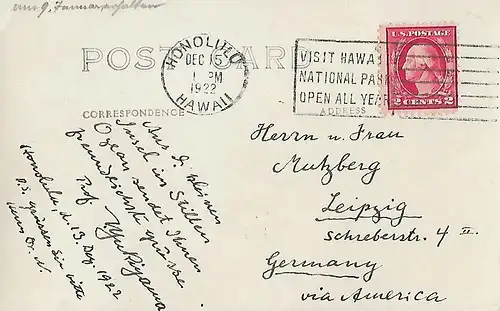 am 9. Januar erhalten
POST CARD
HONOLULU
DEC 15
1 PM
1922
HAWAII
VISIT HAWAII
NATIONAL PARK
OPEN ALL YEAR
U.S. POSTAGE
2 CENTS 2
CORRESPONDENCE
ADDRESS
Aus d. kleinen
Insel im Stillen
Ozean sendet Ihnen
freundlichste Grüsse
Prof.
Honolulu, d. 13. Dez. 1922
P.S. grüssen Sie bitte
Herrn Dr. N.
Herrn u. Frau
Mutzberg
Leipzig
Schreberstr. 4 II.
Germany
via America